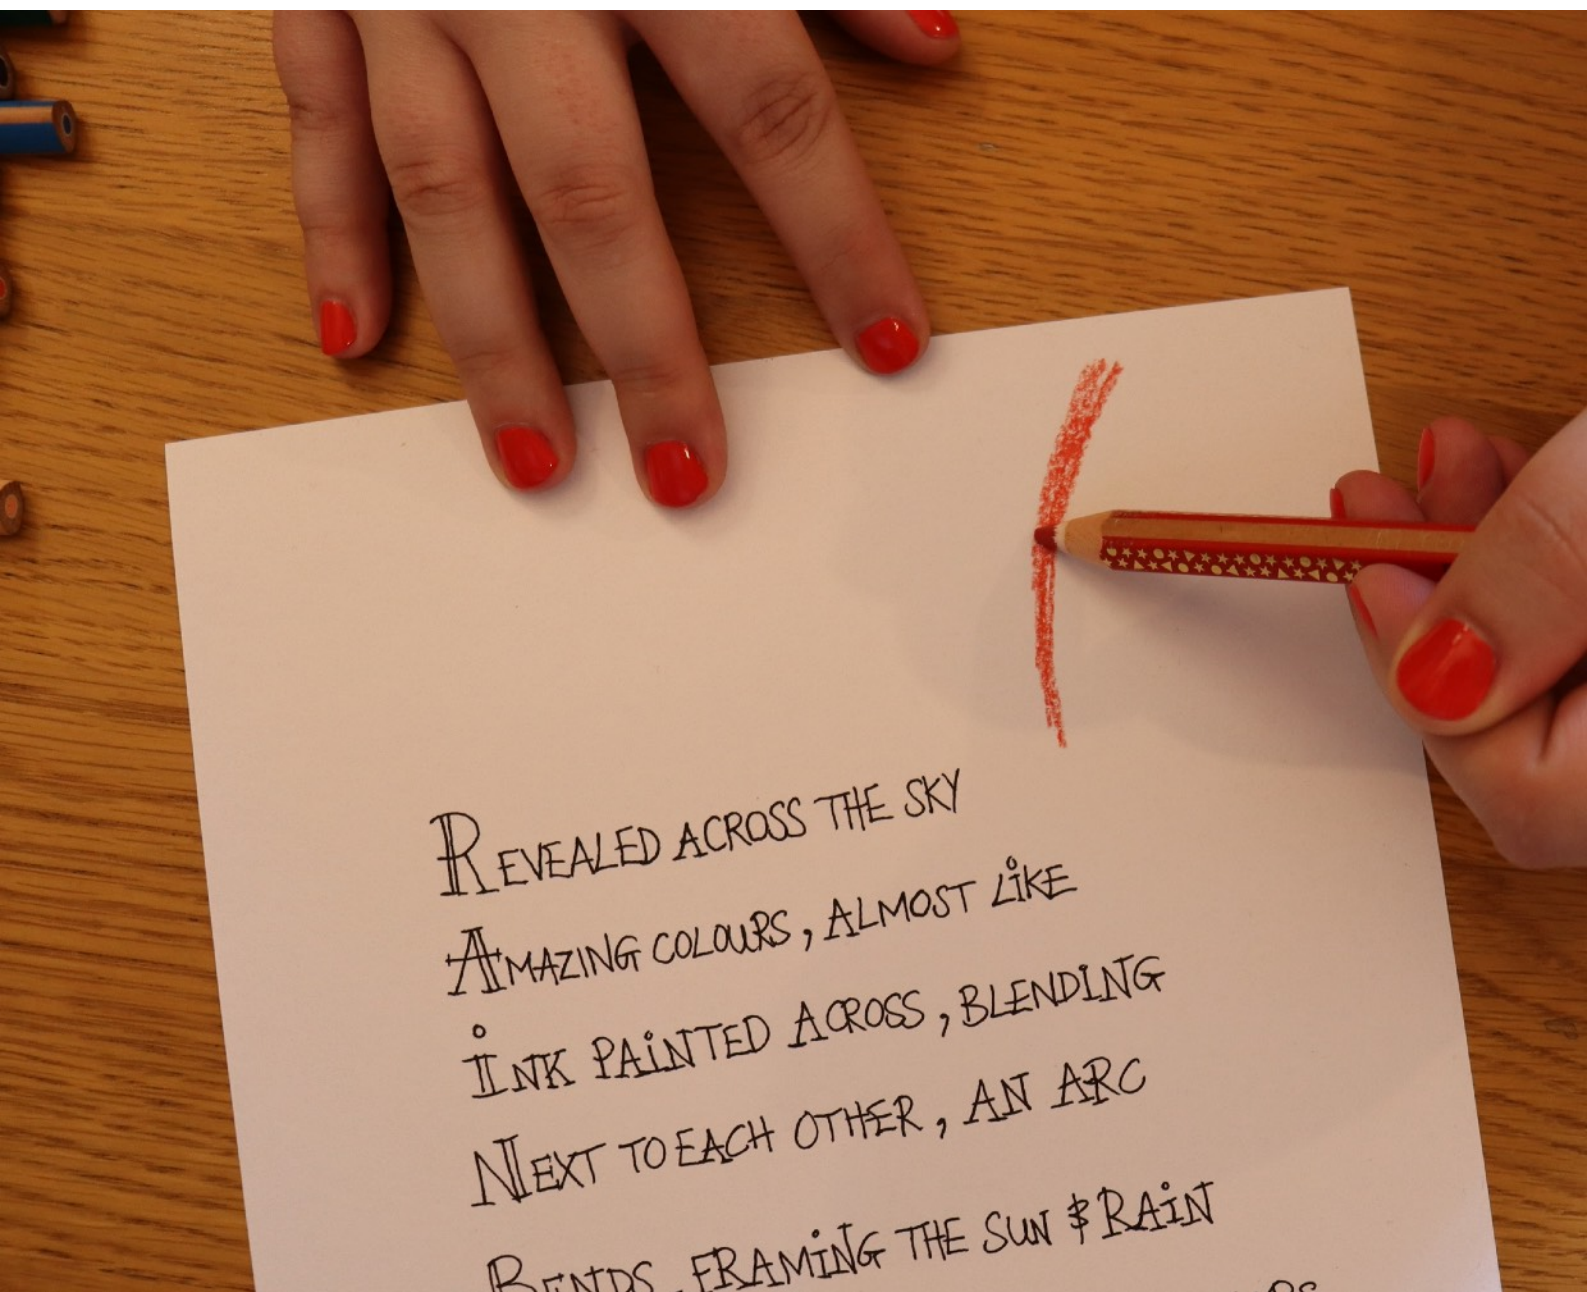 REVEALED ACROSS THE SKY
AMAZING COLOURS, ALMOST LIKE
INK PAINTED ACROSS, BLENDING
NEXT TO EACH OTHER, AN ARC
BENDS, FRAMING THE SUN & RAIN